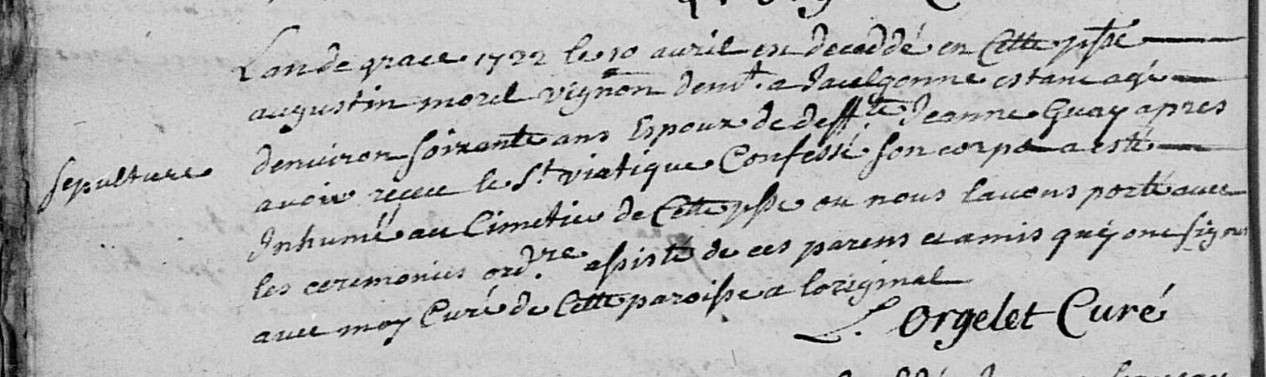 Lan de grace 1722 le 10 avril est deceddé en Cette psse
augustin morel vignon demt. a Jaulgonne estant agé
denviron soixante ans Espoux de deffte Jeanne Guay apres
sepulture
avoir reçeu le St. viatique Confessé son corps a esté
Inhumé au Cimetie de Cette psse ou nous lavons porté avec
les ceremonies ordres assisté de ces parens et amis quy ont signé
avec moy Curé de Cette paroisse a loriginal
L. Orgelet Curé